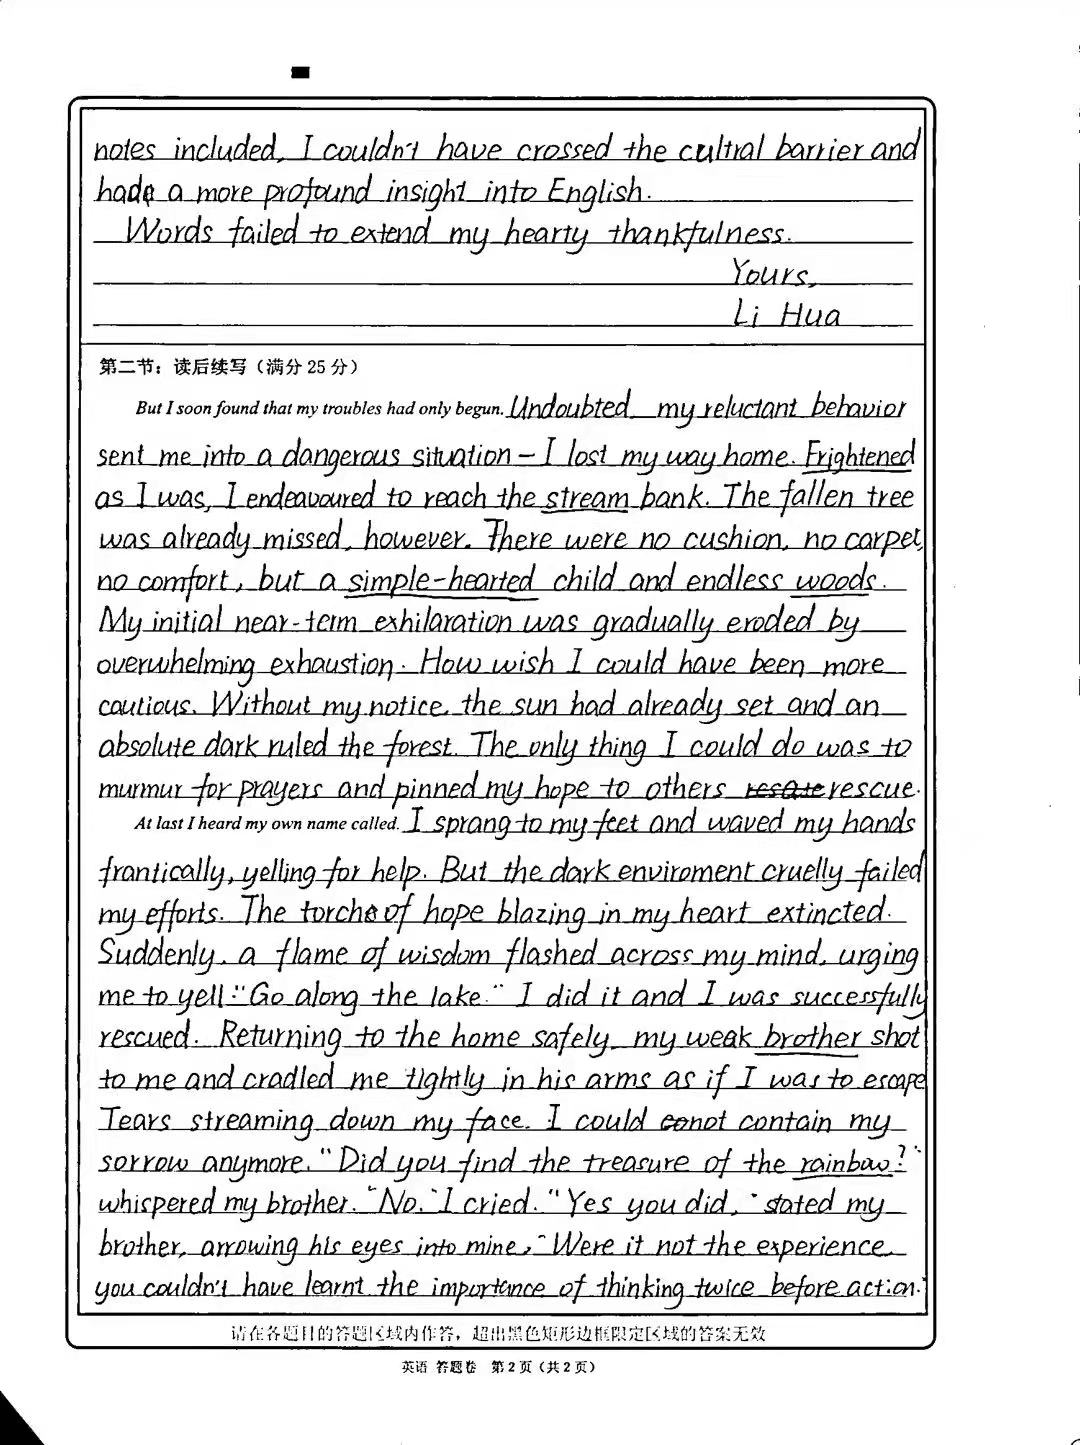 notes included, I couldn't have crossed the cultral barrier and
hade a more profound insight into English.
Words failed to extend my hearty thankfulness.
Yours,
Li Hua
第二节：读后续写（满分 25 分）
But I soon found that my troubles had only begun. Undoubted, my reluctant behavior
sent me into a dangerous situation – I lost my way home. Frightened
as I was, I endeavoured to reach the stream bank. The fallen tree
was already missed, however. There were no cushion, no carpet,
no comfort, but a simple-hearted child and endless woods.
My initial near-term exhilaration was gradually eroded by
overwhelming exhaustion. How wish I could have been more
cautious. Without my notice, the sun had already set and an
absolute dark ruled the forest. The only thing I could do was to
murmur for prayers and pinned my hope to others rescue.
At last I heard my own name called. I sprang to my feet and waved my hands
frantically, yelling for help. But the dark enviroment cruelly failed
my efforts. The torche of hope blazing in my heart extincted.
Suddenly, a flame of wisdom flashed across my mind, urging
me to yell: "Go along the lake." I did it and I was successfully
rescued. Returning to the home safely, my weak brother shot
to me and cradled me tightly in his arms as if I was to escape
Tears streaming down my face. I could not contain my
sorrow anymore. "Did you find the treasure of the rainbow?"
whispered my brother. "No," I cried. "Yes you did," stated my
brother, arrowing his eyes into mine, "Were it not the experience,
you couldn't have learnt the importance of thinking twice before action."
请在各题目的答题区域内作答，超出黑色矩形边框限定区域的答案无效
英语 答题卷 第 2 页（共 2 页）